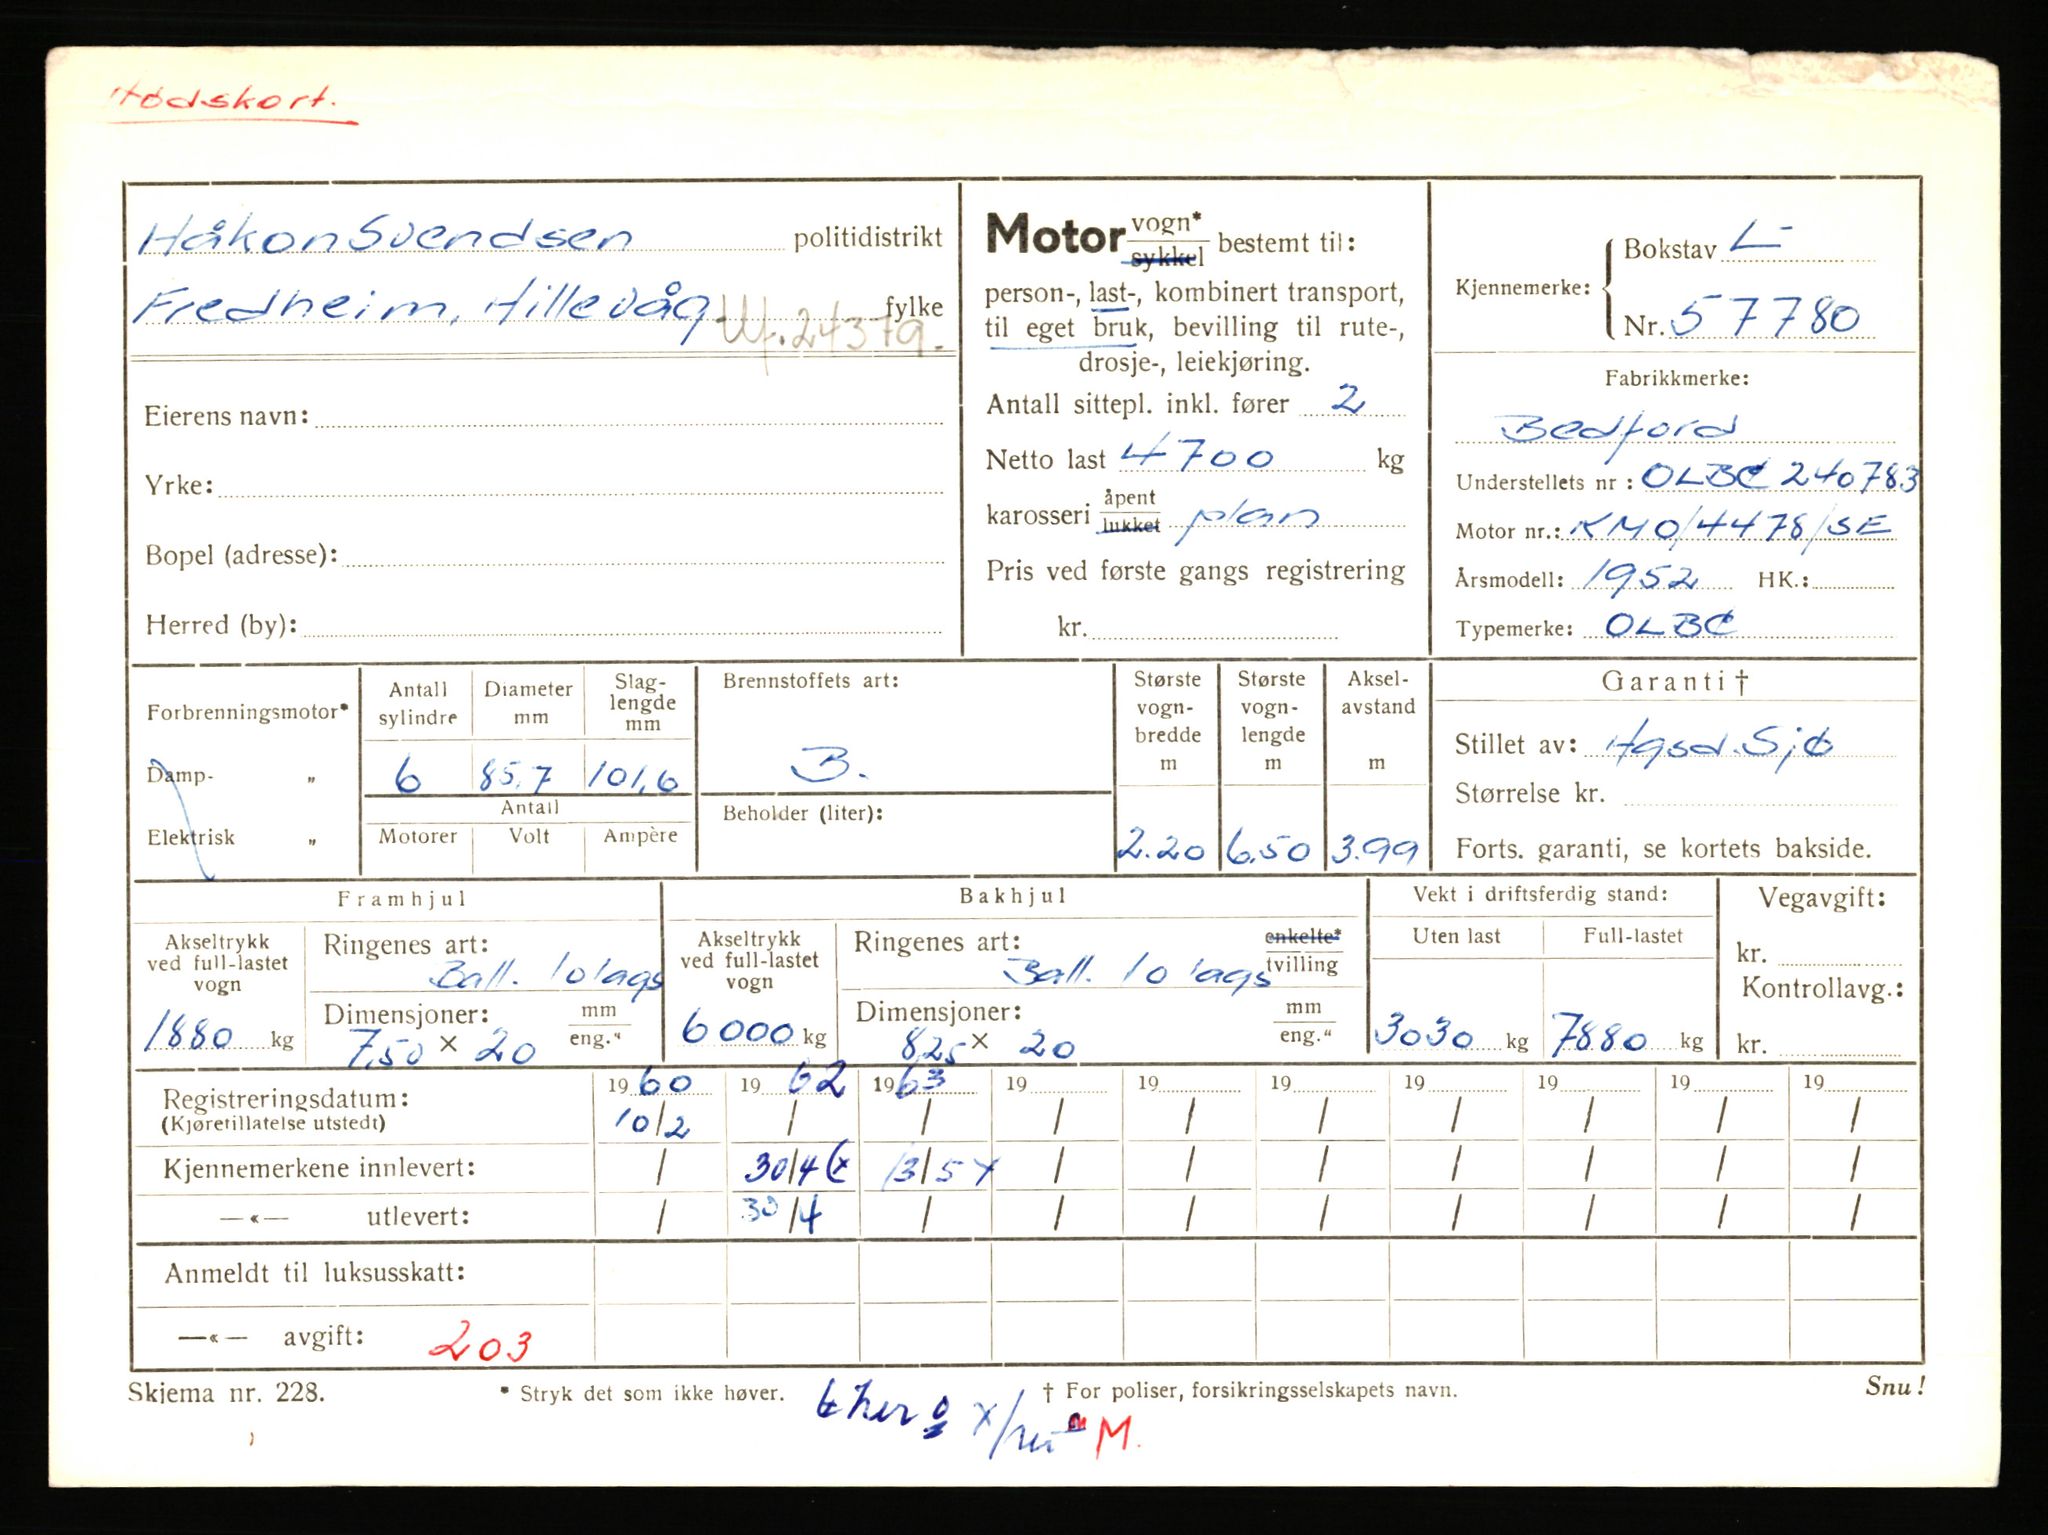 Nødskort.
Håkon Svendsen politidistrikt
Fredheim, Hillevåg fylke
Utf. 24379.
Eierens navn:
Yrke:
Bopel (adresse):
Herred (by):
Motor vogn* sykkel bestemt til:
person-, last-, kombinert transport,
til eget bruk, bevilling til rute-,
drosje-, leiekjøring.
Antall sittepl. inkl. fører 2
Netto last 4700 kg
karosseri åpent lukket plan
Pris ved første gangs registrering
kr.
Kjennemerke: Bokstav L
Nr. 57780
Fabrikkmerke:
Bedford
Understellets nr: OLBC 240783
Motor nr.: KMO/4478/SE
Årsmodell: 1952 HK.:
Typemerke: OLBC
Forbrenningsmotor*
Damp- „
Elektrisk „
Antall sylindre
6
Diameter mm
85,7
Slaglengde mm
101,6
Antall
Motorer Volt Ampère
Brennstoffets art:
B.
Beholder (liter):
Største vognbredde m
2.20
Største vognlengde m
6.50
Akselavstand m
3.99
Garanti †
Stillet av: Hgsd. Sjø
Størrelse kr.
Forts. garanti, se kortets bakside.
Framhjul
Akseltrykk ved full-lastet vogn
1880 kg
Ringenes art:
Ball. 10 lags
Dimensjoner: mm eng."
7,50 × 20
Bakhjul
Akseltrykk ved full-lastet vogn
6000 kg
Ringenes art: enkelte* tvilling
Ball. 10 lags
Dimensjoner: mm eng."
825 × 20
Vekt i driftsferdig stand:
Uten last Full-lastet
3030 kg 7880 kg
Vegavgift:
kr.
Kontrollavg.:
kr.
1960 1962 1963 19 19 19 19 19 19 19
Registreringsdatum: 10/2 / / / / / / / / /
(Kjøretillatelse utstedt)
Kjennemerkene innlevert: / 30/4 (x 13/5 x / / / / / / /
—«— utlevert: / 30/4 / / / / / / / /
Anmeldt til luksusskatt:
—«— avgift: 203
Skjema nr. 228. * Stryk det som ikke høver. † For poliser, forsikringsselskapets navn. Snu!
M.